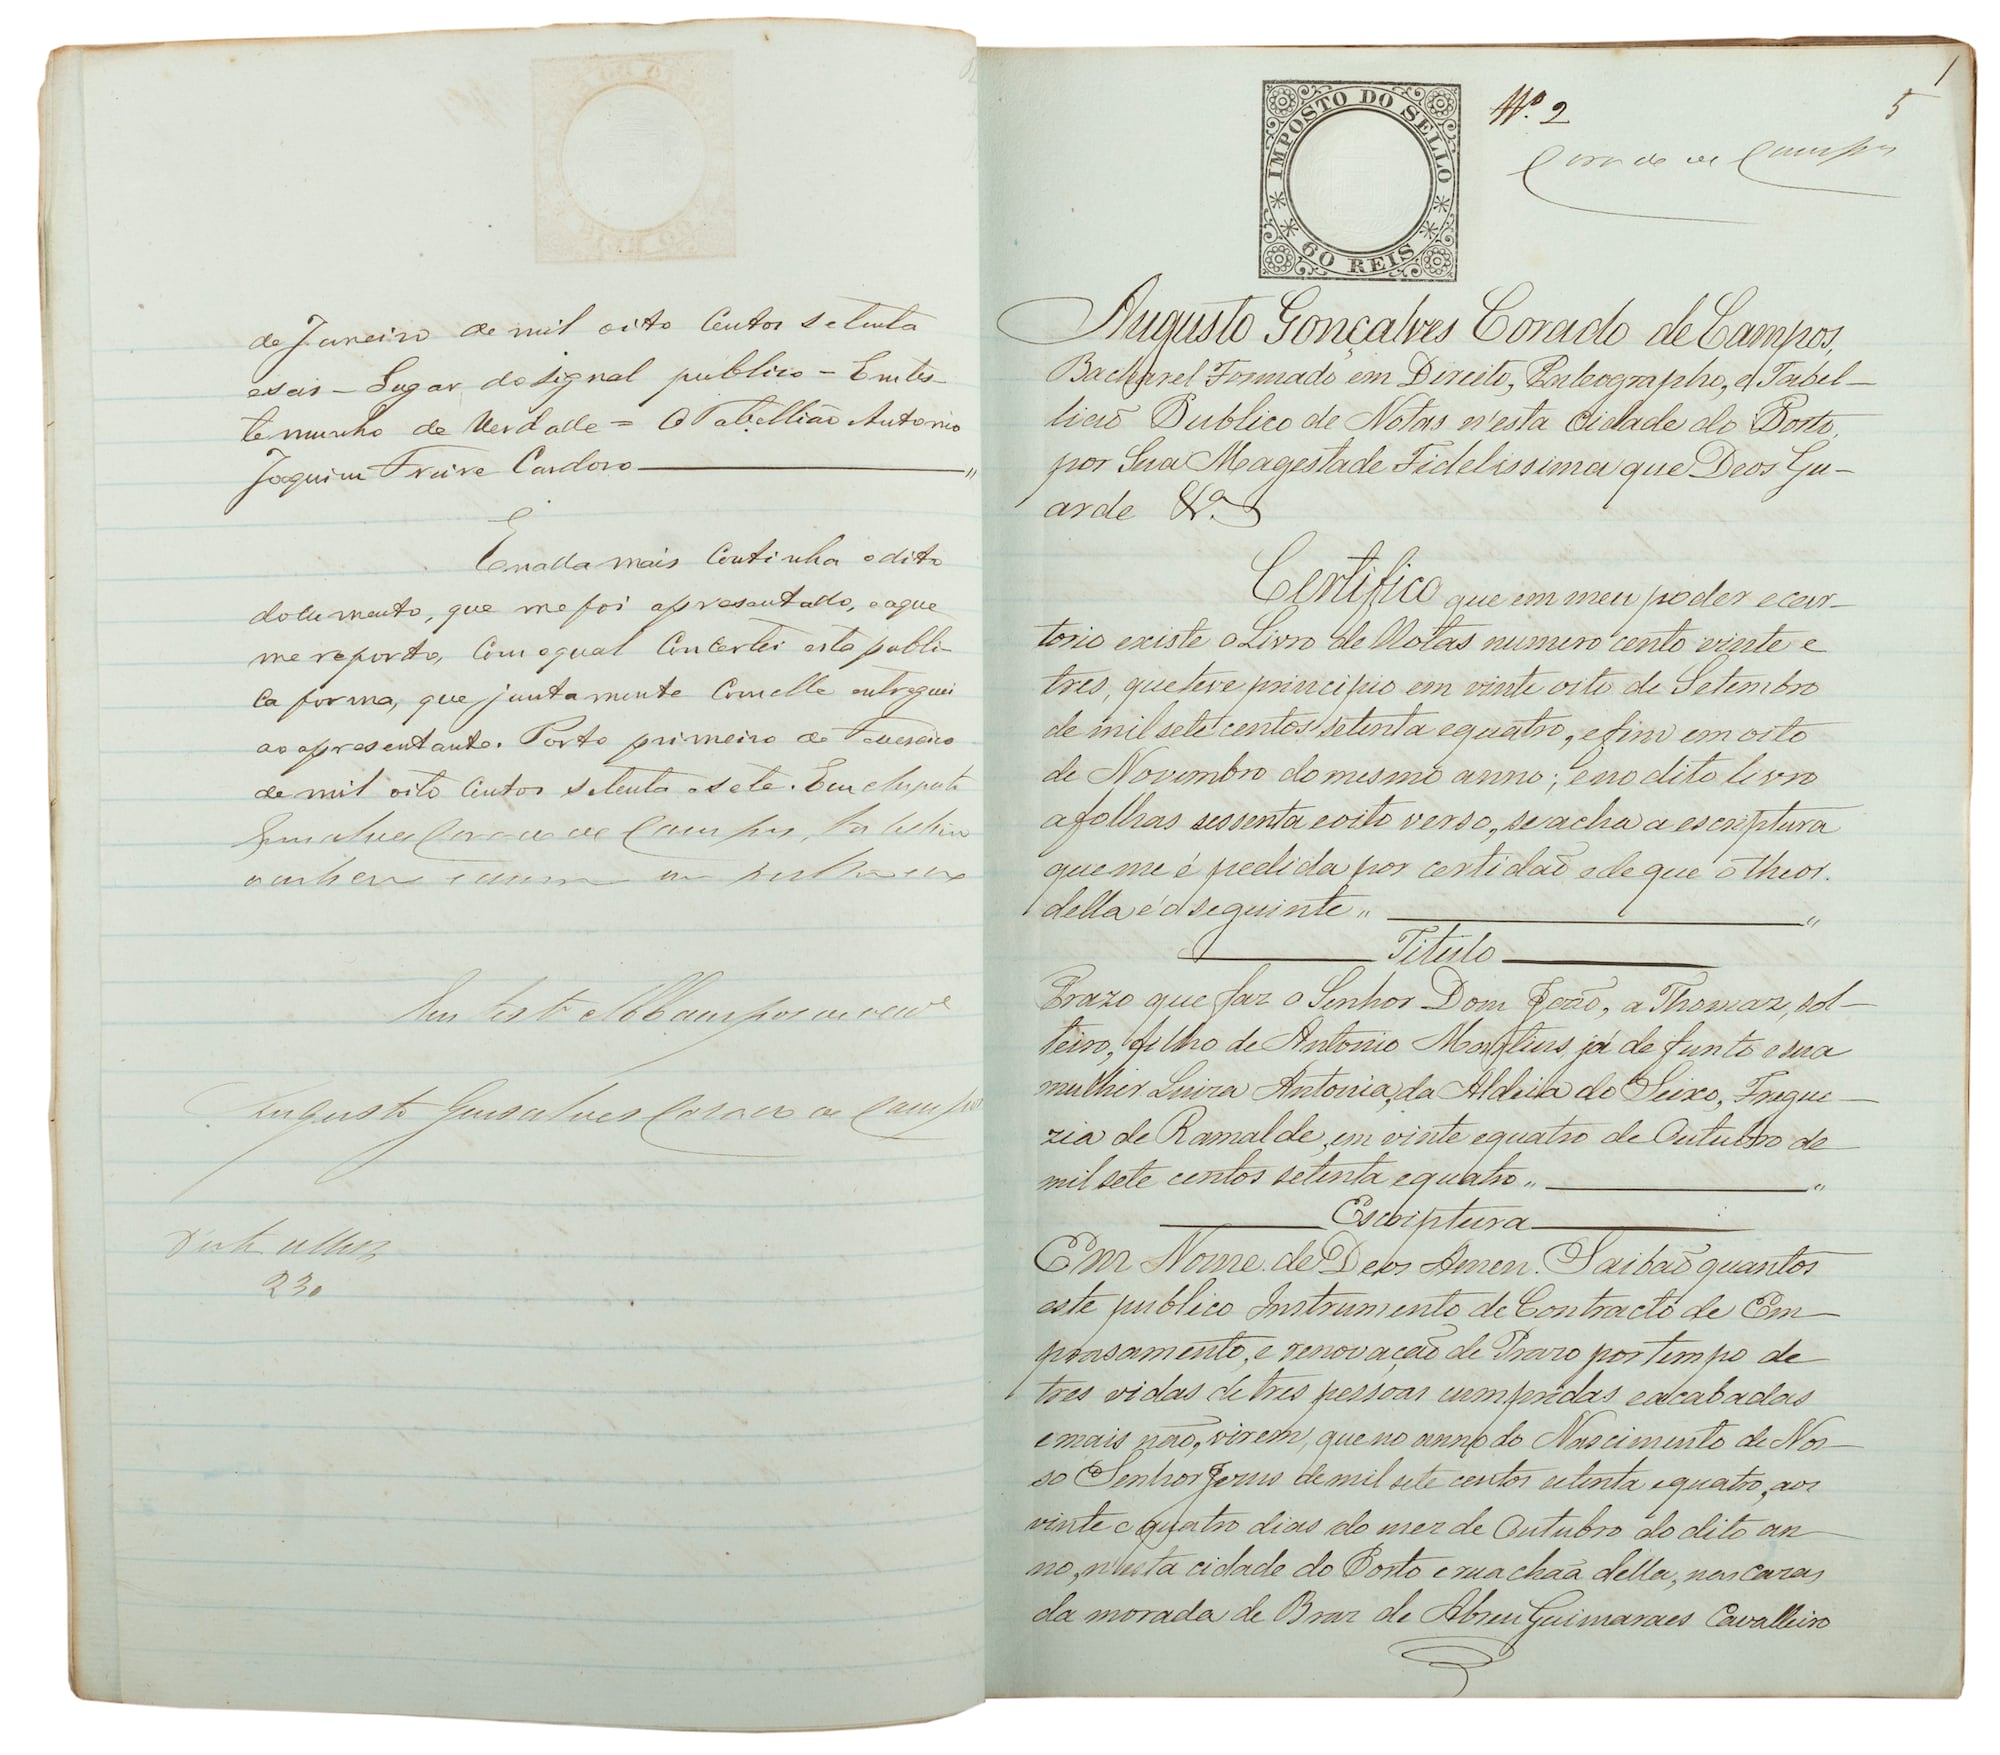 de Janeiro de mil oito centos setenta
e seis - Lugar do signal publico - Em tes-
temunho de verdade = O Tabellião Antonio
Joaquim Freire Cardoso "
E nada mais continha o dito
documento, que me foi apresentado, e a que
me reporto, com o qual concertei esta publi-
ca forma, que juntamente com elle entreguei
ao apresentante. Porto primeiro de Fevereiro
de mil oito centos setenta e sete. Eu Augusto
Gonsalves Corado de Campos, Tabelião
Augusto Gonsalves Corado de Campos
230
1
5
Nº 2
Corado de Campos
IMPOSTO DO SELLO
60 REIS
Augusto Gonçalves Corado de Campos,
Bacharel Formado em Direito, Enteographo, e Tabel-
lião Publico de Notas n'esta Cidade do Porto,
por Sua Magestade Fidelissima que Deos Gu-
arde &ª.
Certifico que em meu poder e car-
torio existe o Livro de Notas numero cento vinte e
tres, que teve principio em vinte oito de Setembro
de mil sete centos setenta e quatro, e fim em oito
de Novembro do mesmo anno; e no dito livro
a folhas sessenta e oito verso, se acha a escriptura
que me é pedida por certidão e de que o theor
della é o seguinte " "
Titulo
Prazo que faz o Senhor Dom João, a Thomaz, sol-
teiro, filho de Antonio Martins, já defunto e sua
mulher Luiza Antonia, da Aldeia do Seixo, Fregue-
zia de Ramalde, em vinte e quatro de Outubro de
mil sete centos setenta e quatro " "
Escriptura
Em Nome de Deos Amen. Saibão quantos
este publico Instrumento de Contracto de Em-
prasamento, e renovação de Prazo por tempo de
tres vidas de tres pessoas cumpridas e acabadas
e mais não, virem, que no anno do Nascimento de Nos-
so Senhor Jesus de mil sete centos setenta e quatro, aos
vinte e quatro dias do mez de Outubro do dito an-
no, n'esta cidade do Porto e rua chaã della, nas cazas
da morada de Braz de Abreu Guimaraes Cavalleiro